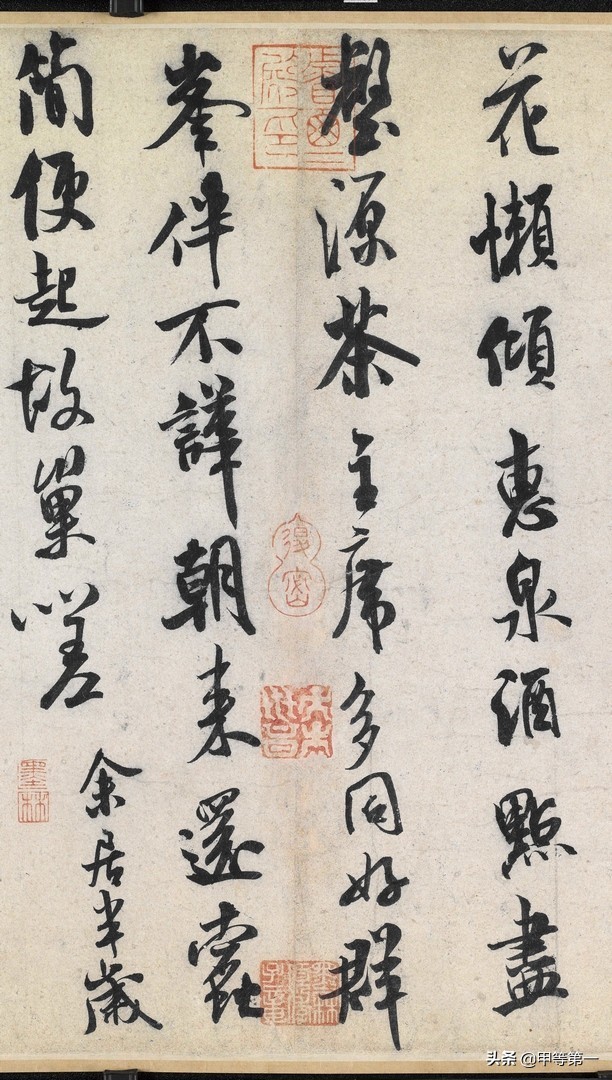 花懶傾惠泉酒點盡
壑源茶主席多同好群
峯伴不譁朝来還蠹
簡便起故巢嗟
余居半歲
墨林
头条 @甲等第一